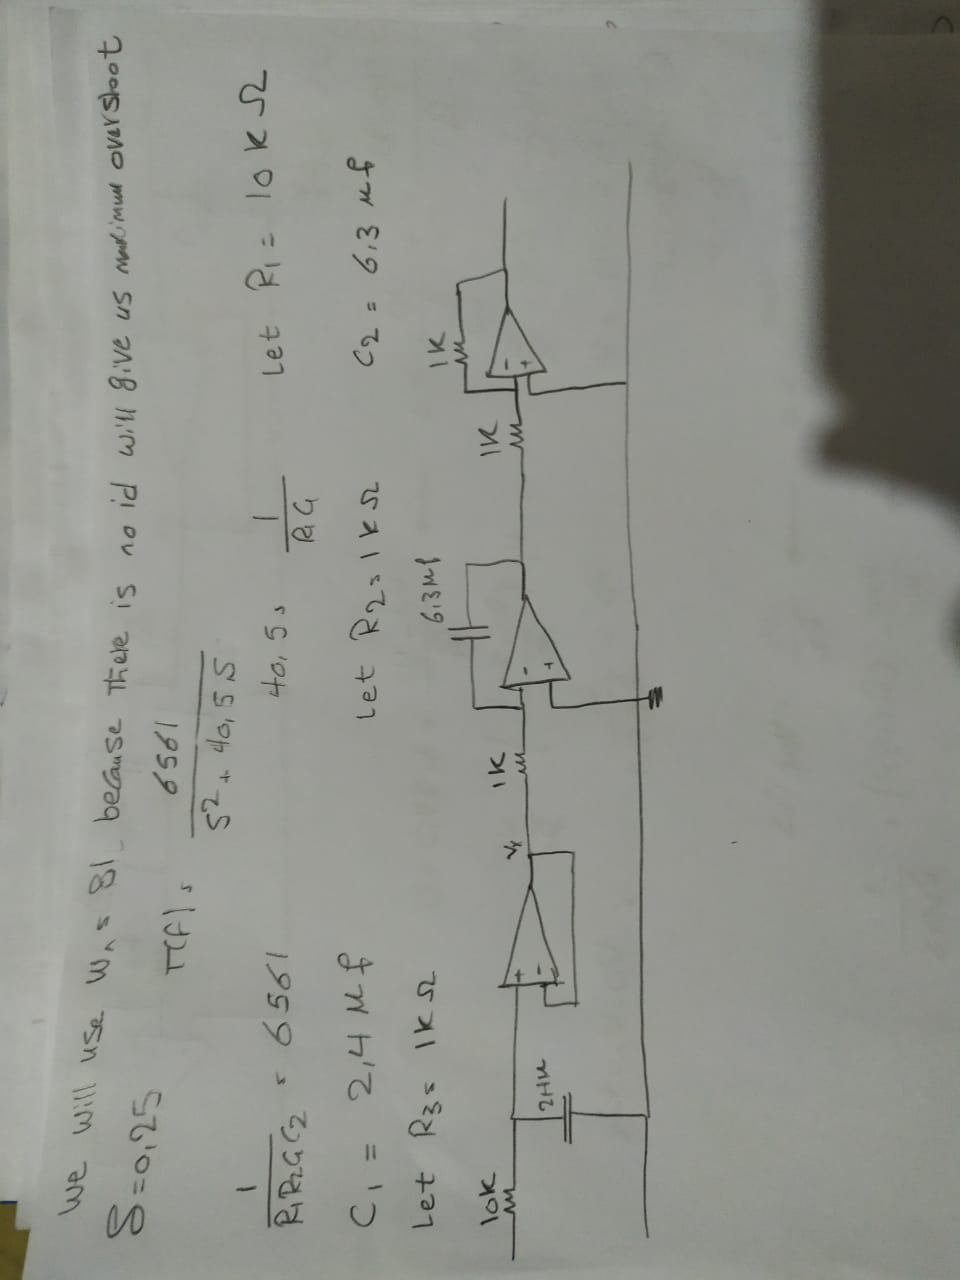 We will use Wn = 81 because there is no id will give us maximum overshoot
δ=0,25
T(f) = 6561 / S² + 40,5 S
1 / R1R2C1C2 = 6561
40,5 = 1 / R1C1
Let R1 = 10 K Ω
C1 = 2,4 Mf
Let R2 = 1 K Ω
C2 = 6,3 Mf
Let R3 = 1K Ω
10K
1K
6,3Mf
1K
1K
+
-
-
+
-
+